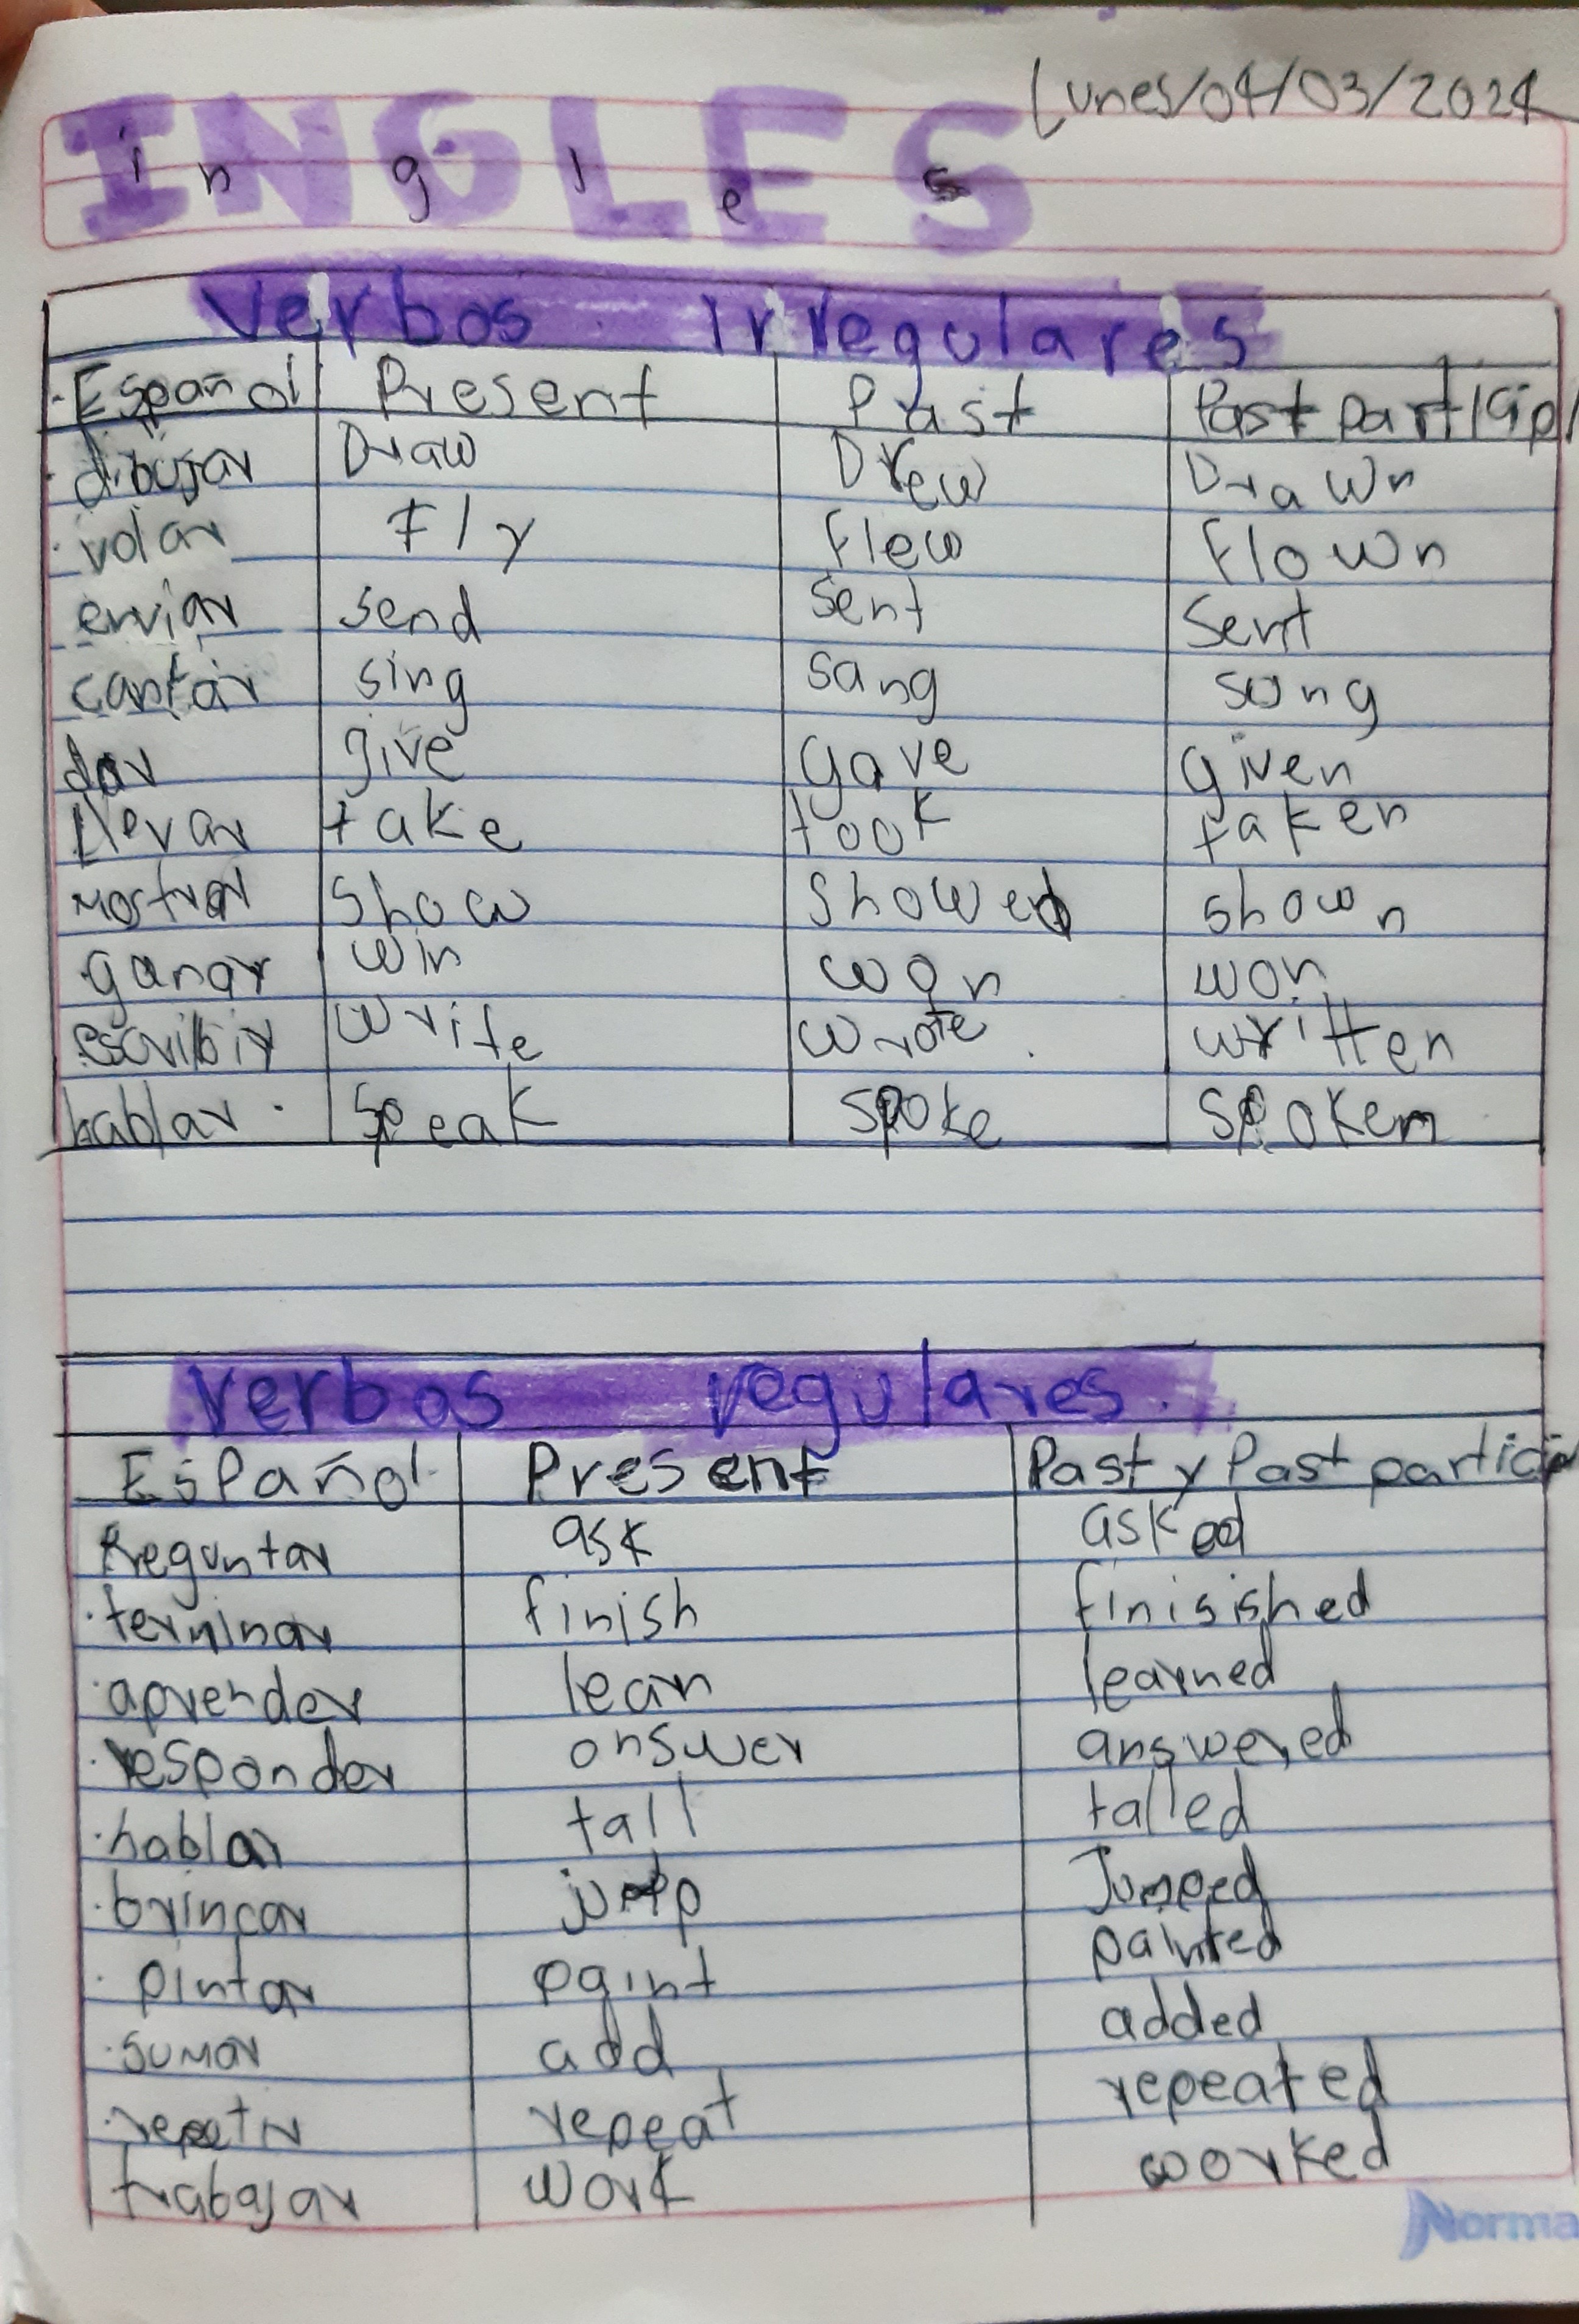 Lunes/04/03/2024
INGLES
i n g l e s
Verbos Irregulares
Español Present Past Past particip
dibujar Draw Drew Drawn
volar Fly flew flown
enviar send sent sent
cantar sing sang song
dar give gave given
llevar take took taken
mostrar show showed shown
ganar win won won
escribir write wrote written
hablar speak spoke spoken
Verbos regulares.
Español Present Past y Past particip
Preguntar ask asked
terminar finish finisished
aprender lean learned
responder onswer answered
hablar tall talled
brincar jump Jumped
pintar paint painted
sumar add added
repetir repeat repeated
trabajar work worked
Norma